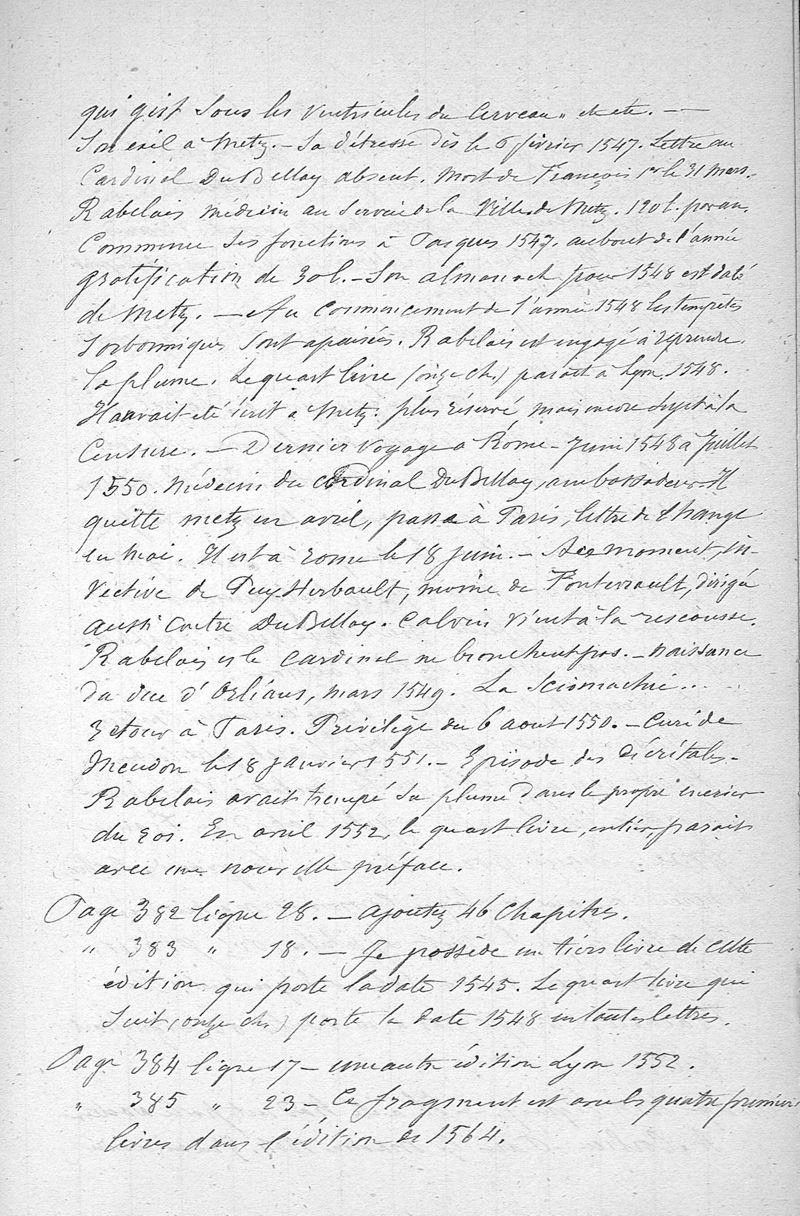 qui gist sous les ventricules du cerveau" et etc. — —
Son exil à Metz. — Sa détresse dès le 6 février 1547. Lettre au
Cardinal Du Bellay absent. Mort de François 1er le 31 Mars.
Rabelais médecin au service de la Ville de Metz. 120 l. par an.
Commence ses fonctions à Pasques 1547. au bout de l'année
gratification de 30 l. — Son almanach pour 1548 est daté
de Metz. — Au commencement de l'année 1548 les tempêtes
Sorbonniques sont apaisées. Rabelais est engagé à reprendre
la plume. Le quart livre (onze ch.) parait à Lyon 1548.
Il avait été écrit à Metz. plus réservé mais encore sujet à la
Censure. — Dernier voyage à Rome — Juin 1548 à Juillet
1550. Médecin du cardinal Du Bellay, ambassadeur. Il
quitte Metz en avril, passe à Paris, lettre de change
en mai. Il est à Rome le 18 juin. — A ce moment, in-
vective de Puy Herbault, moine de Fontevrault, dirigée
aussi contre Du Bellay. Calvin vient à la rescousse.
Rabelais et le cardinal ne bronchent pas. — Naissance
du duc d'Orléans, mars 1549. La Sciomachie...
Retour à Paris. Privilège du 6 aout 1550. — Curé de
Meudon le 18 Janvier 1551. — Episode des décrétales —
Rabelais avait trempé sa plume dans le propre encrier
du roi. En avril 1552, le quart livre, entier, parait
avec une nouvelle préface.
Page 382 ligne 28. — ajoutez 46 Chapitres.
" 383 " 18. — Je possède un tiers livre de cette
édition qui porte la date 1545. Le quart livre qui
suit (onze ch.) porte la date 1548 en toutes lettres.
Page 384 ligne 17 — une autre édition Lyon 1552.
" 385 " 23 — Ce fragment est avec les quatre premiers
livres dans l'édition de 1564.